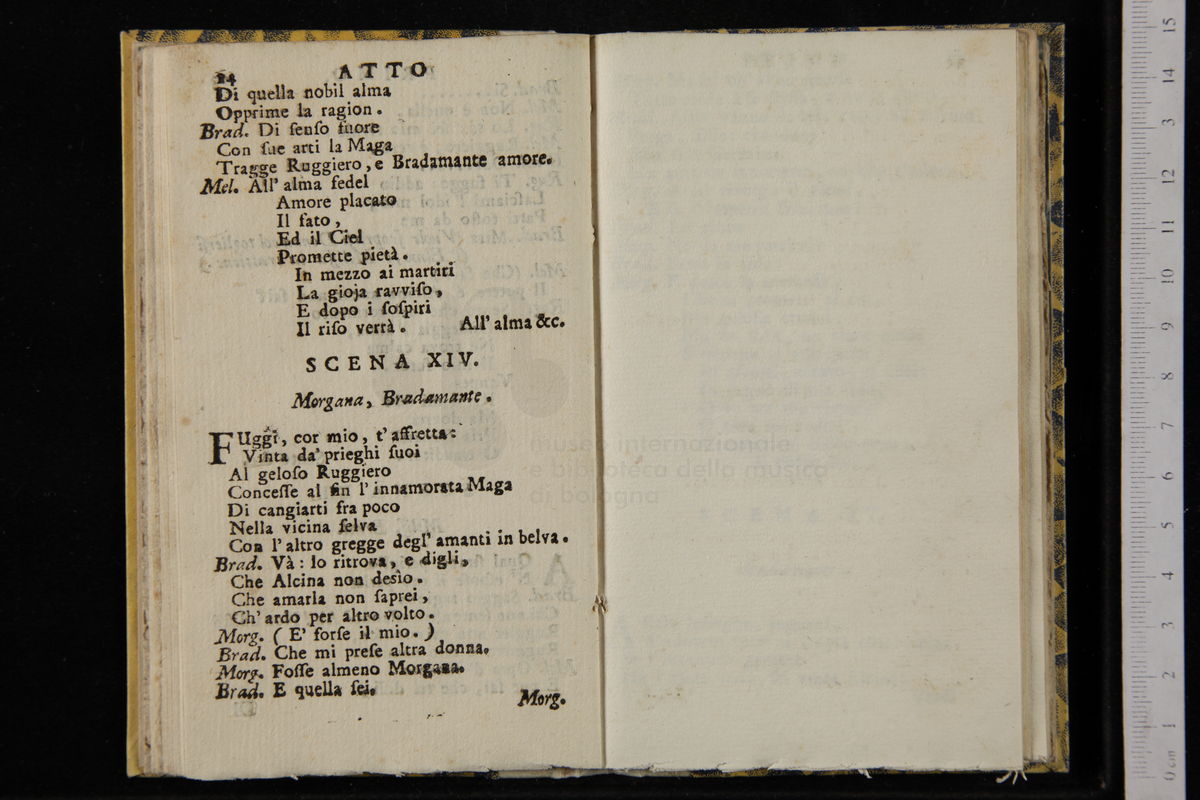 24 ATTO
Di quella nobil alma
Opprime la ragion.
Brad. Di ſenſo fuore
Con ſue arti la Maga
Tragge Ruggiero, e Bradamante amore.
Mel. All' alma fedel
Amore placato
Il fato,
Ed il Ciel
Promette pietà.
In mezzo ai martiri
La gioja ravviſo,
E dopo i ſoſpiri
Il riſo verrà. All' alma &c.
SCENA XIV.
Morgana, Bradamante.
FUggi, cor mio, t' affretta:
Vinta da' prieghi ſuoi
Al geloſo Ruggiero
Conceſſe al fin l' innamorata Maga
Di cangiarti fra poco
Nella vicina ſelva
Con l' altro gregge degl' amanti in belva.
Brad. Và: lo ritrova, e digli,
Che Alcina non desìo.
Che amarla non ſaprei,
Ch' ardo per altro volto.
Morg. (E' forſe il mio.)
Brad. Che mi preſe altra donna.
Morg. Foſſe almeno Morgana.
Brad. E quella ſei.
Morg.
museo internazionale
e biblioteca della musica
di bologna
0 cm 1 2 3 4 5 6 7 8 9 10 11 12 3 14 15